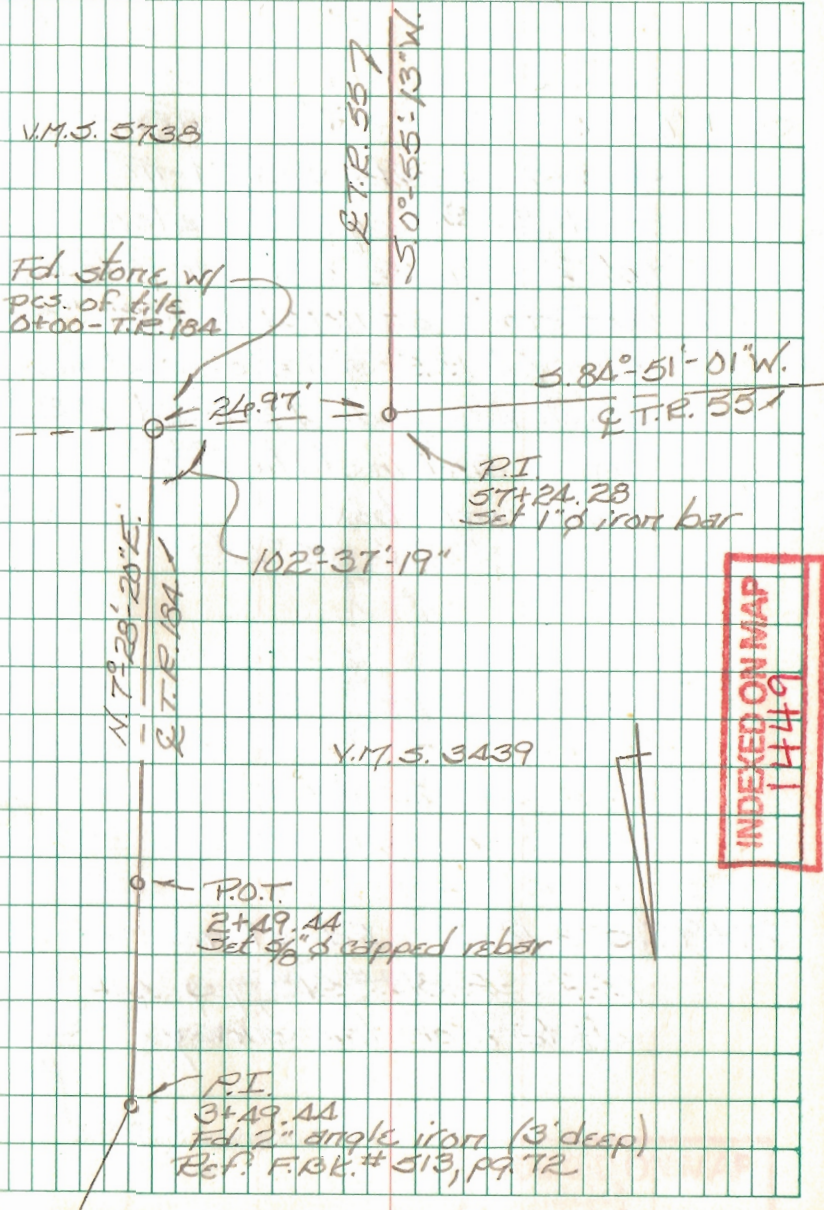 V.M.S. 5738
℄ T.R. 557
S 0°-55'-13" W.
Fd. stone w/
pcs. of tile
0+00 - T.R. 184
24.97'
S. 84°-51'-01" W.
℄ T.R. 557
P.I.
57+24.28
Set 1" ø iron bar
102°-37'-19"
N. 7°-28'-20" E.
℄ T.R. 184
V.M.S. 3439
INDEXED ON MAP
1449
P.O.T.
2+49.44
Set 5/8" ø capped rebar
P.I.
3+49.44
Fd. 2" angle iron (3' deep)
Ref: F.BK. # 513, pg. 72